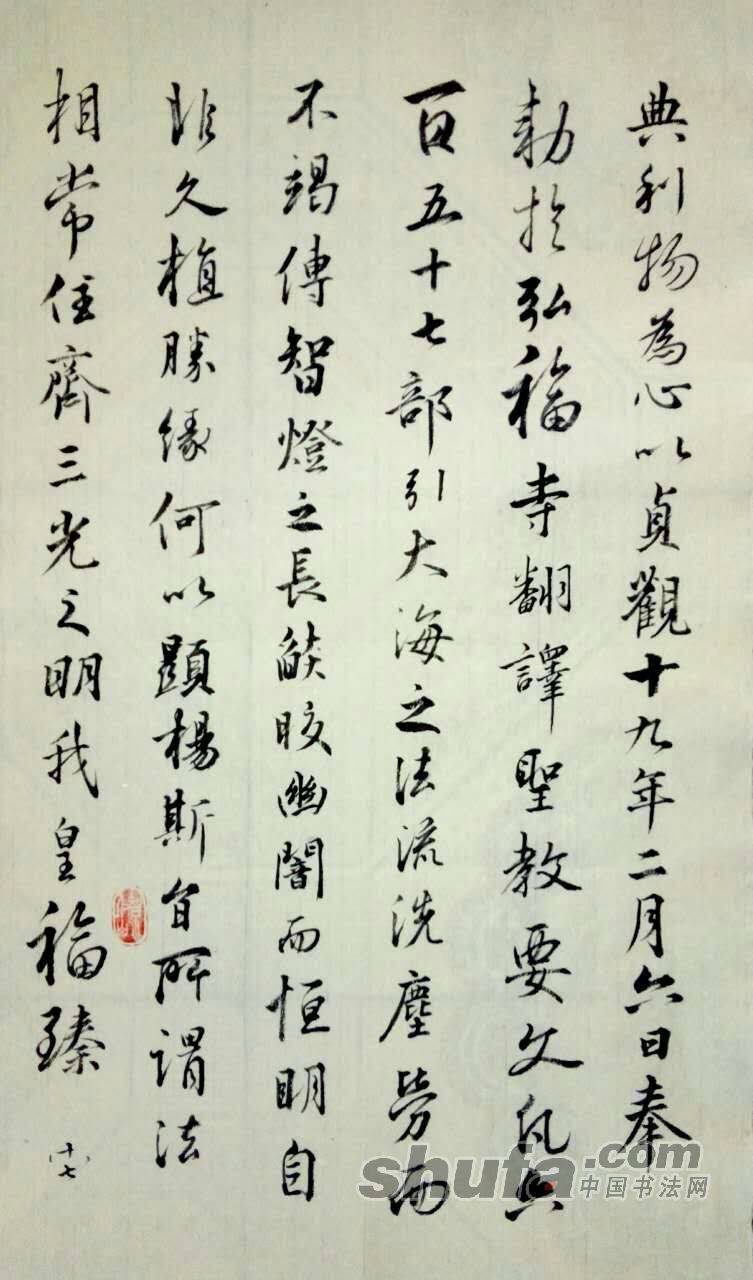 典利物為心以貞觀十九年二月六日奉
勅於弘福寺翻譯聖教要文凡六
百五十七部引大海之法流洗塵勞而
不竭傳智燈之長燄皎幽闇而恒明自
非久植勝緣何以顯揚斯旨所謂法
相常住齊三光之明我皇福臻
十七
shufa.com
中国书法网